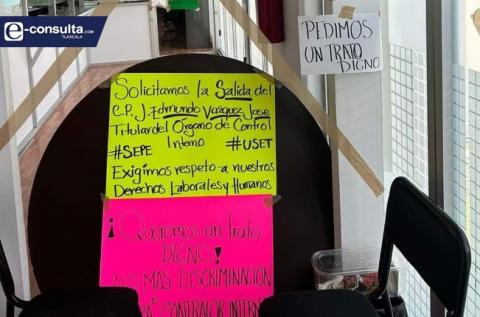 e-consulta.com
TLAXCALA
PEDIMOS
UN TRATO
DIGNO
Solicitamos la Salida del
C.P. J. Edmundo Vázquez Jose
Titular del Órgano de Control
#SEPE Interno #USET
Exigimos respeto a nuestros
Derechos Laborales y Humanos
¡Queremos un trato
DIGNO!
MAS DISCRIMINACION
CONTRALOR INTERN